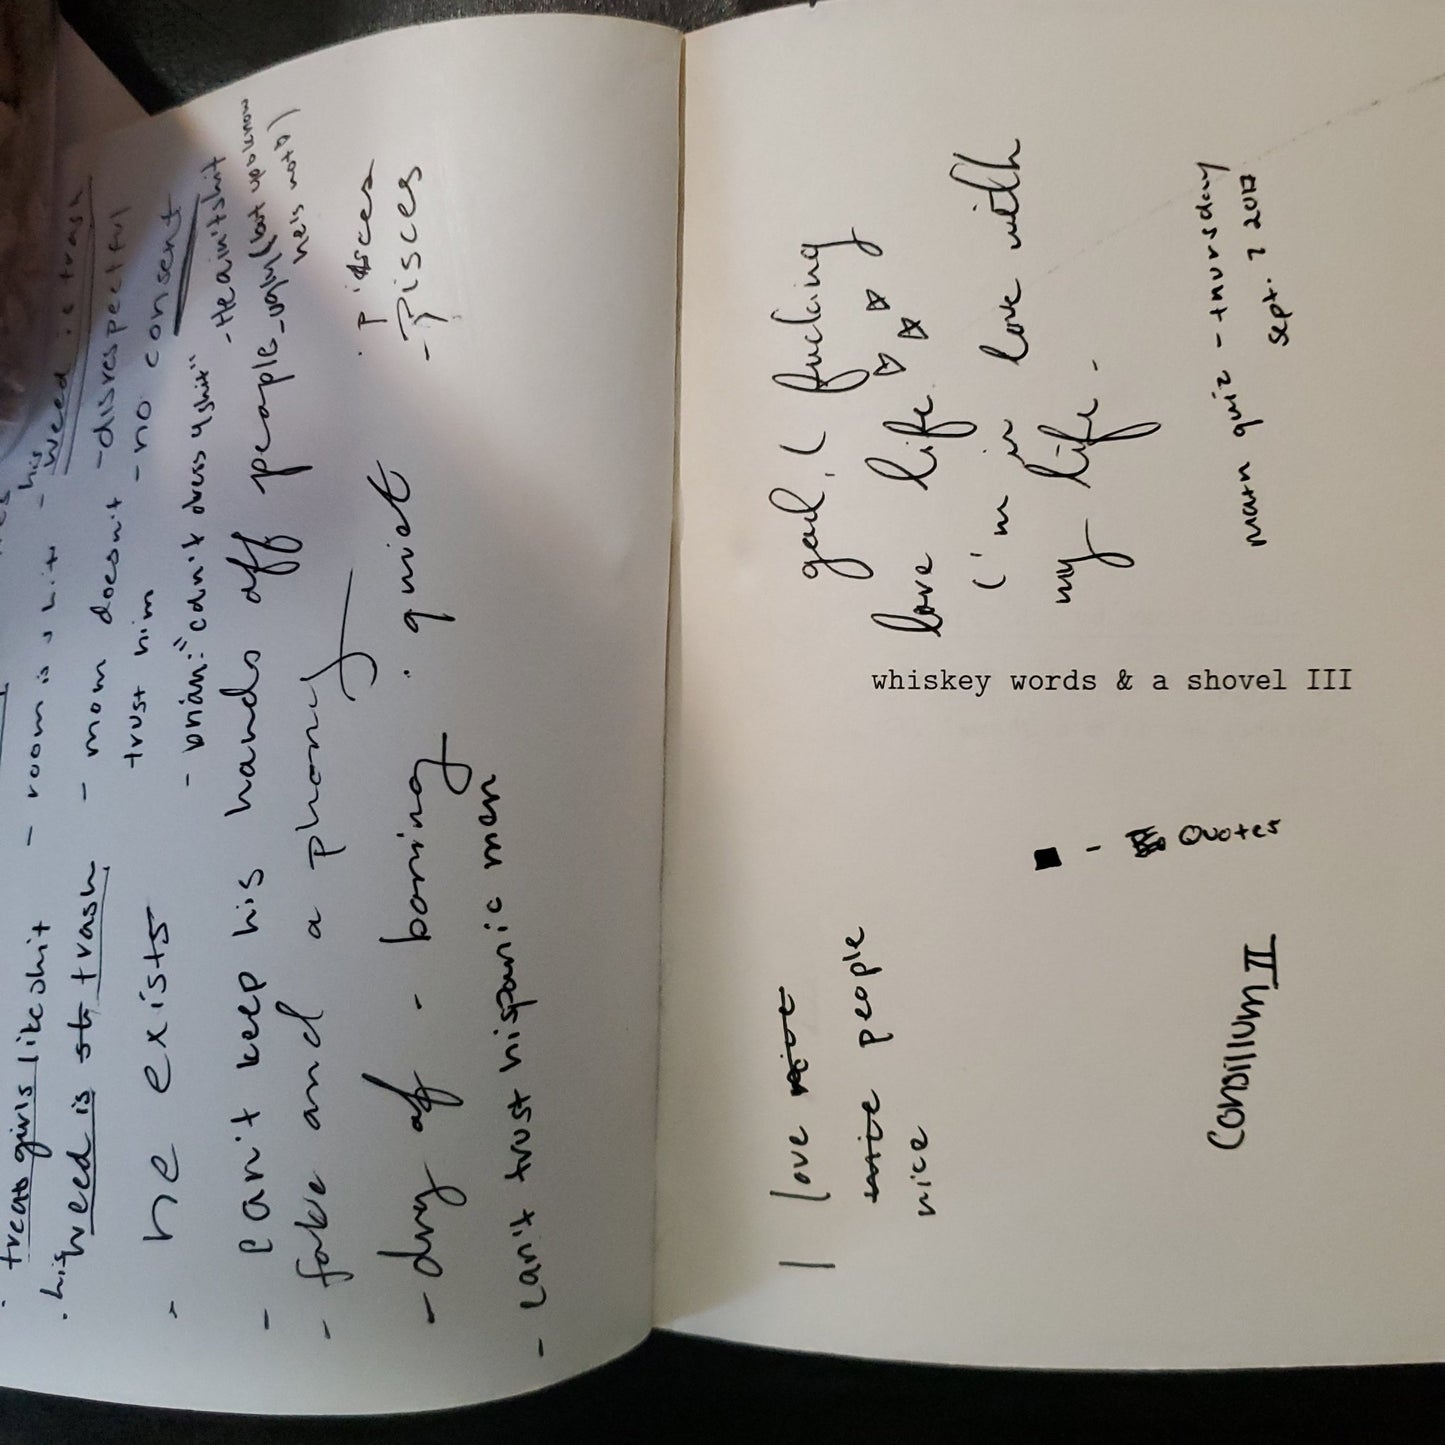 treats girls like shit
. his weed is trash
- he exists
- can't keep his hands off people
- fake and a phony
- dry af - boring . quiet
- can't trust hispanic men
- room is shit - his weed is trash
- mom doesn't trust him
- disrespectful
- no consent
- brian: "can't dress 4 shit"
- He ain't shit
- ugly (but u pb know he's not D)
. pisces
- Pisces
god, I fucking
love life
i'm in love with
my life -
math quiz - thursday
sept. 7 2017
whiskey words & a shovel III
- Quotes
I love nice
people
nice
Consillum II